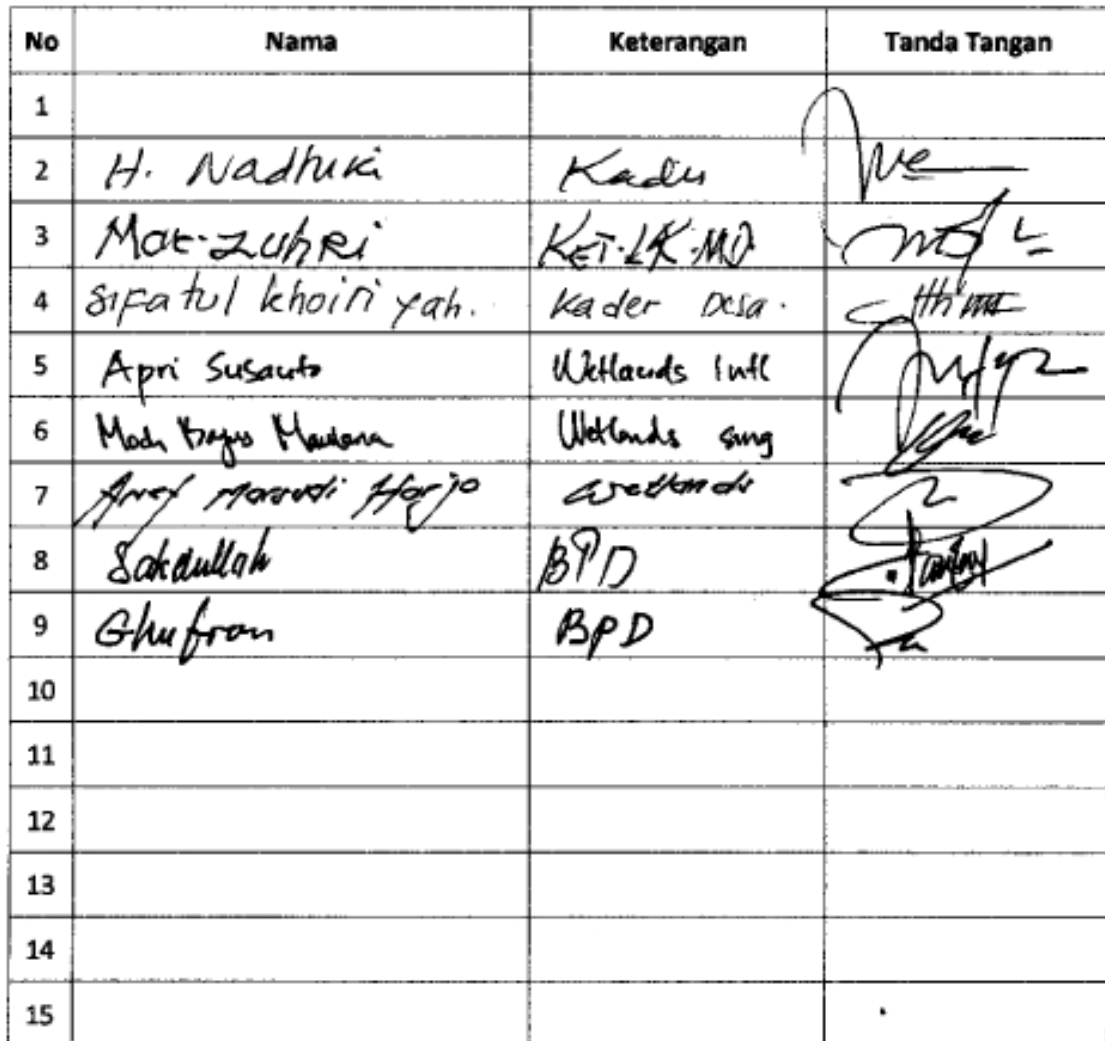 No Nama Keterangan Tanda Tangan
1
2 H. Nadhiri Kadus
3 Moc. Zuhri KET. LK. MD.
4 Sifatul khoiri yah. Kader Desa.
5 Apri Susanto Wetlands Intl
6 Moch Bagus Maulana Wetlands
7 Harjo Wetlands
8 Sakdullah BPD
9 Ghufron BPD
10
11
12
13
14
15